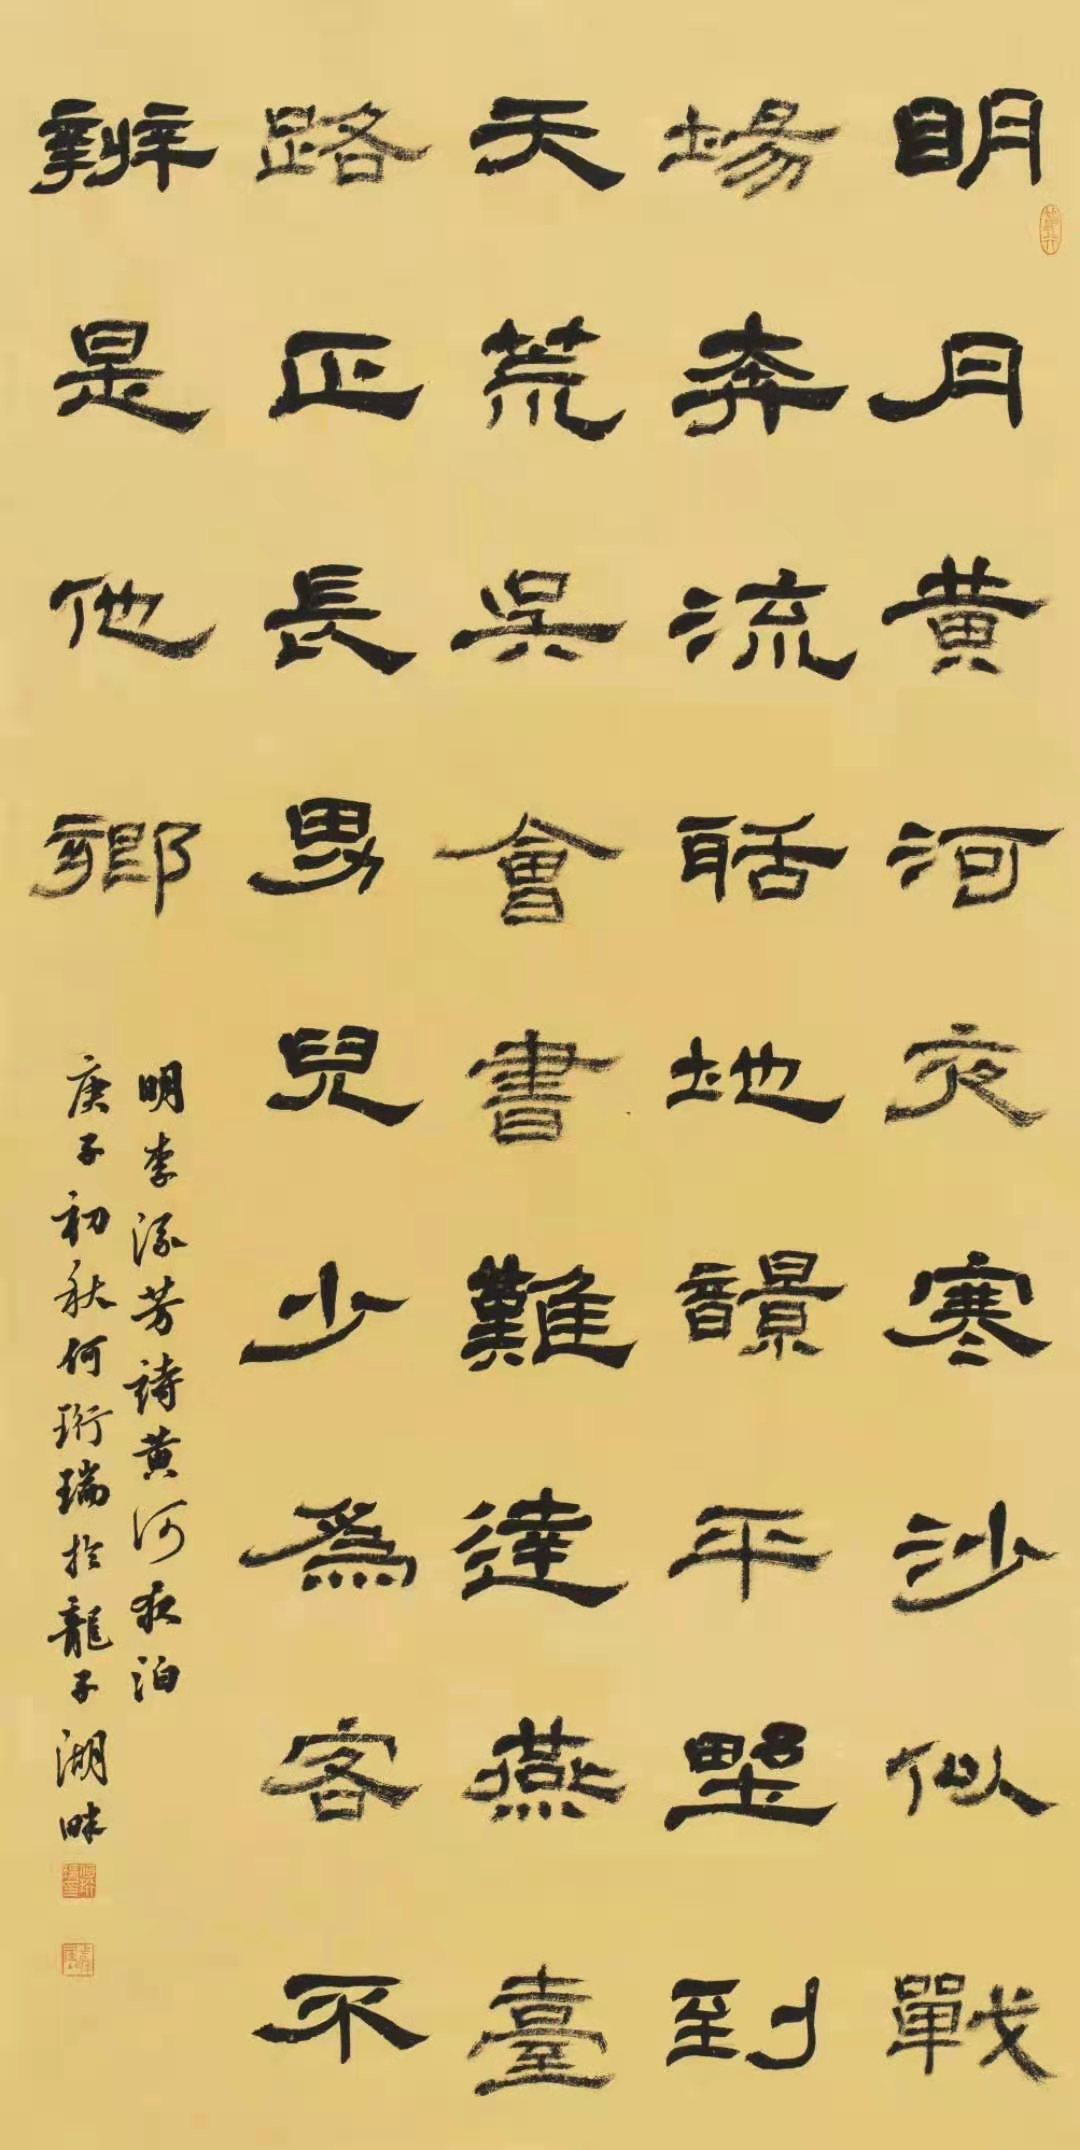 明月黄河夜寒沙似戰
場奔流聒地響平野到
天荒吳會書難達燕臺
路正長男兒少為客不
辨是他鄉
明李流芳詩黄河夜泊
庚子初秋何珩瑞於龍子湖畔